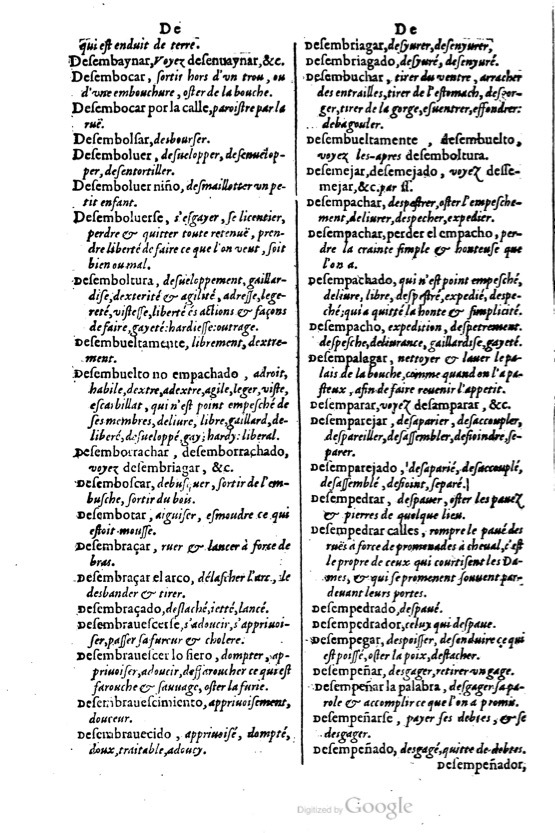 De
qui est enduit de terre.
Desembaynar, Voyez desenuaynar, &c.
Desembocar, sortir hors d'vn trou, ou
d'vne embouchure, oster de la bouche.
Desembocar por la calle, paroistre par la
ruë.
Desembolsar, desbourser.
Desemboluer, desuelopper, desenuelop-
per, desentortiller.
Desemboluer niño, desmaillotter vn pe-
tit enfant.
Desemboluerse, s'esgayer, se licentier,
perdre & quitter toute retenuë, pren-
dre liberté de faire ce que l'on veut, soit
bien ou mal.
Desemboltura, desueloppement, gaillar-
dise, dexterité & agilité, adresse, lege-
reté, vistesse, liberté és actions & façons
de faire, gayeté: hardiesse: outrage.
Desembueltamente, librement, dextre-
ment.
Desembuelto no empachado, adroit,
habile, dextre, adextre, agile, leger, viste,
escarbillat, qui n'est point empesché de
ses membres, deliure, libre, gaillard, de-
liberé, desueloppé, gay; hardy: liberal.
Desemborrachar, desemborrachado,
voyez desembriagar, &c.
Desemboscar, debusquer, sortir de l'em-
busche, sortir du bois.
Desembotar, aiguiser, esmoudre ce qui
estoit mousse.
Desembraçar, ruer & lancer à force de
bras.
Desembraçar el arco, délascher l'arc, le
desbander & tirer.
Desembraçado, deslaché, ietté, lancé.
Desembrauescerse, s'adoucir, s'appriuoi-
ser, passer sa fureur & cholere.
Desembrauescer lo fiero, dompter, ap-
priuoiser, adoucir, deffaroucher ce qui est
farouche & sauuage, oster la furie.
Desembrauescimiento, appriuoisement,
douceur.
Desembrauecido, appriuoisé, dompté,
doux, traitable, adoucy.
De
Desembriagar, desyurer, desenyurer,
Desembriagado, desyuré, desenyuré.
Desembuchar, tirer du ventre, arracher
des entrailles, tirer de l'estomach, desgor-
ger, tirer de la gorge, esuentrer, effondrer:
debagouler.
Desembueltamente, desembuelto,
voyez les-apres desemboltura.
Desemejar, desemejado, voyez desse-
mejar, &c. par ss.
Desempachar, despestrer, oster l'empesche-
ment, deliurer, despecher, expedier.
Desempachar, perder el empacho, per-
dre la crainte simple & honteuse que
l'on a.
Desempachado, qui n'est point empesché,
deliure, libre, despestré, expedié, despe-
ché; qui a quitté la honte & simplicité.
Desempacho, expedition, despetrement.
despesche, deliurance, gaillardise, gayeté.
Desempalagar, nettoyer & lauer le pa-
lais de la bouche, comme quand on l'a pa-
steux, afin de faire reuenir l'appetit.
Desemparar, voyez desamparar, &c.
Desemparejar, desaparier, desaccoupler,
despareiller, desassembler, desioindre, se-
parer.
Desemparejado, desaparié, desaccouplé,
desassemblé, desioint, separé.
Desempedrar, despauer, oster les pauez
& pierres de quelque lieu.
Desempedrar calles, rompre le paué des
ruës à force de promenades à cheual, c'est
le propre de ceux qui courtisent les Da-
mes, & qui se promenent souuent par-
deuant leurs portes.
Desempedrado, despaué.
Desempedrador, celuy qui despaue.
Desempegar, despoisser, desenduire ce qui
est poissé, oster la poix, destacher.
Desempeñar, desgager, retirer vn gage.
Desempeñar la palabra, desgager sa pa-
role & accomplir ce que l'on a promis.
Desempeñarse, payer ses debtes, & se
desgager.
Desempeñado, desgagé, quitte de debtes.
Desempeñador,
Digitized by Google